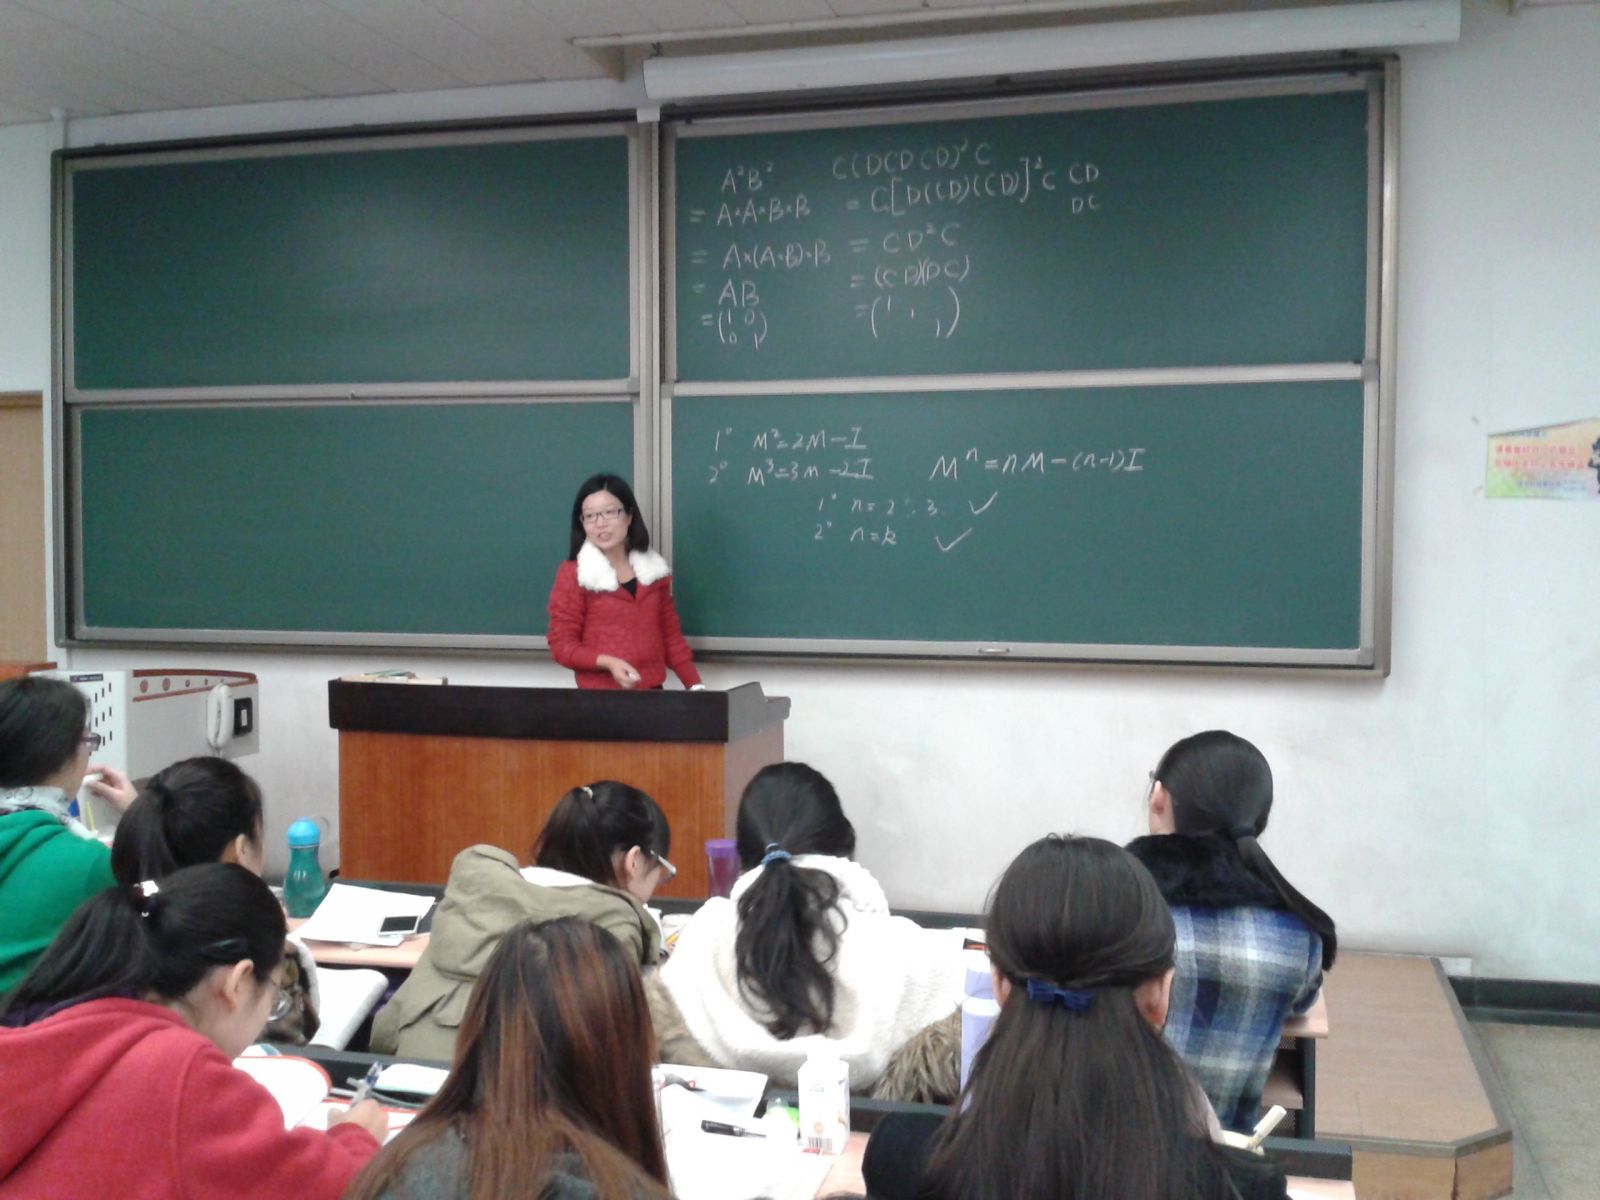 A²B²
= A×A×B×B
= A×(A×B)×B
= AB
= (1 0
0 1)
C(DCDCD)²C
= C[D(CD)(CD)]²C CD
DC
= CD²C
= (CD)(DC)
= (1 1 1)
1° M²=2M-I
2° M³=3M-2I
Mⁿ=nM-(n-1)I
1° n=2 3 ✓
2° n=k ✓